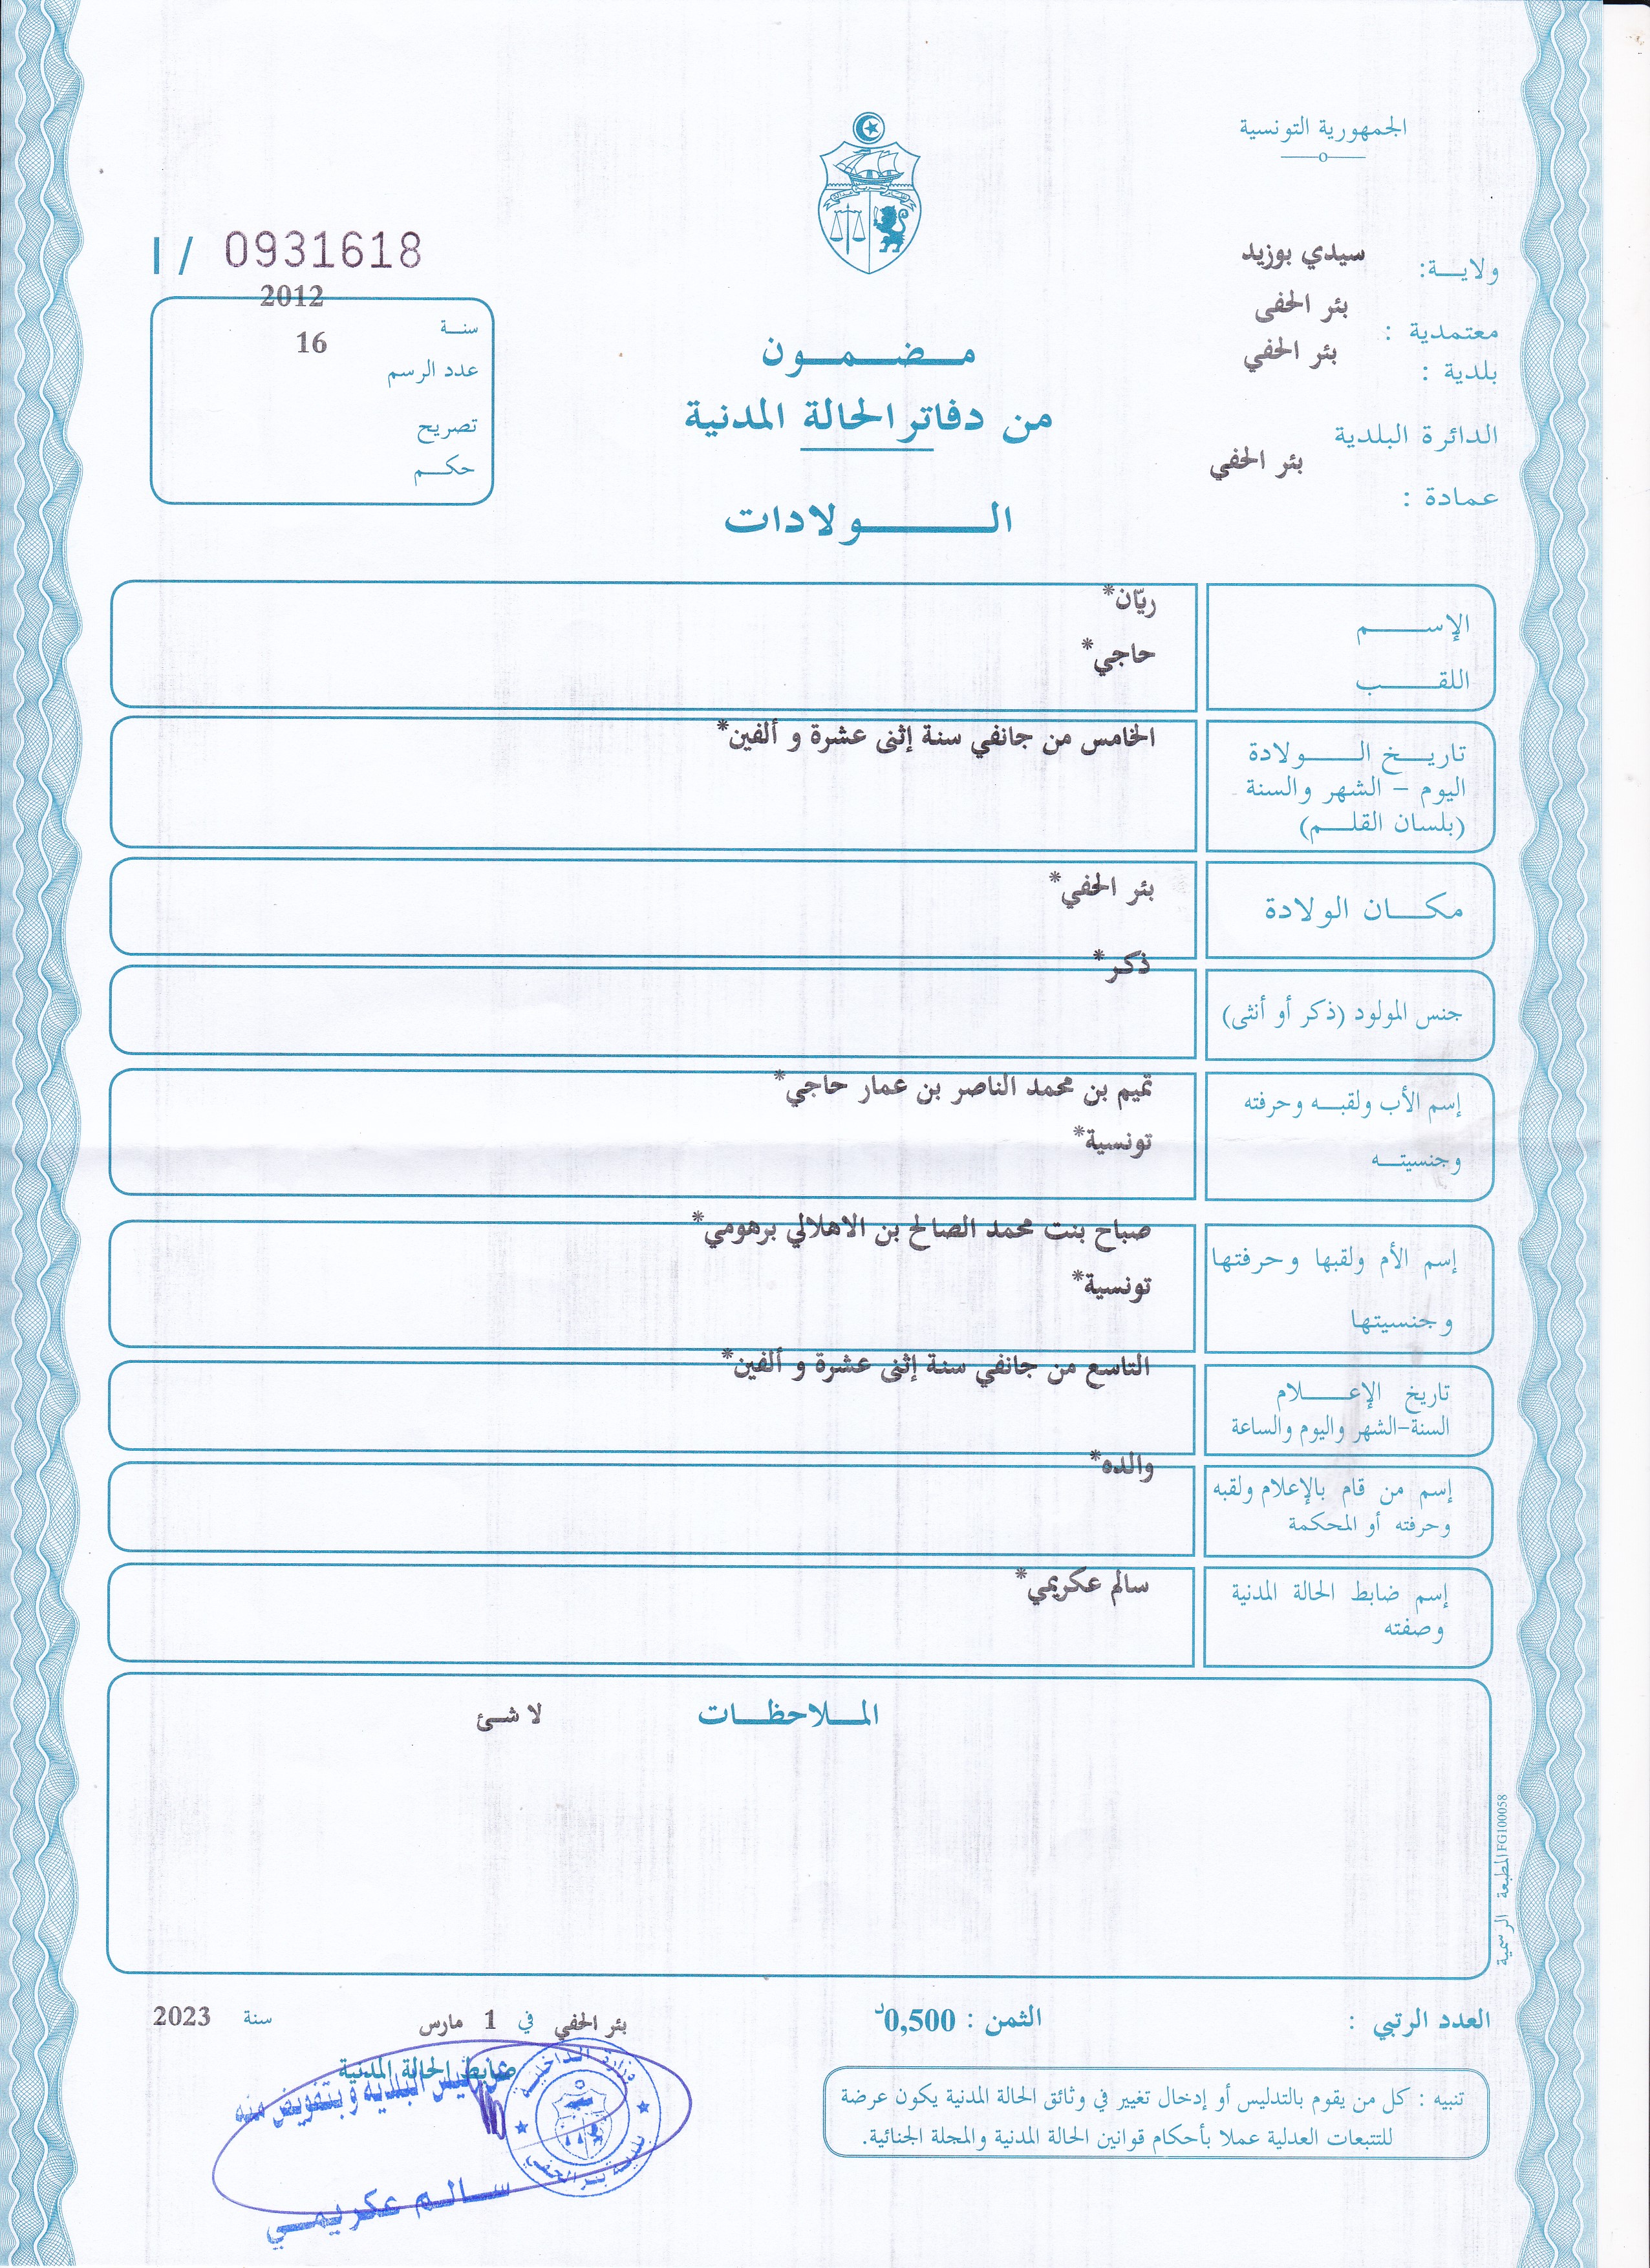 الجمهورية التونسية
ولايـــة: سيدي بوزيد
معتمدية : بئر الحفى
بلدية : بئر الحفي
الدائرة البلدية
بئر الحفي
عمادة :
I / 0931618
2012
سنــة
16
عدد الرسم
تصريح
حكـــم
مــضــمــون
من دفاتر الحالة المدنية
الــــولادات
الإســـــم ريّان*
اللقـــــب حاجي*
تاريــخ الــــولادة الخامس من جانفي سنة إثنى عشرة و ألفين*
اليوم - الشهر والسنة
(بلسان القلـــم)
مكـــان الولادة بئر الحفي*
ذكر*
جنس المولود (ذكر أو أنثى)
إسم الأب ولقبــه وحرفته تميم بن محمد الناصر بن عمار حاجي*
وجنسيتــه تونسية*
إسم الأم ولقبها وحرفتها صباح بنت محمد الصالح بن الاهلالي برهومي*
وجنسيتها تونسية*
تاريخ الإعــــلام التاسع من جانفي سنة إثنى عشرة و ألفين*
السنة-الشهر واليوم والساعة
إسم من قام بالإعلام ولقبه والده*
وحرفته أو المحكمة
إسم ضابط الحالة المدنية سالم عكريمي*
وصفته
المــلاحظــات لا شئ
المطبعة الرسمية FG100058
العدد الرتبي :
الثمن : 0,500د
بئر الحفي في 1 مارس سنة 2023
ضابط الحالة المدنية
عن رئيس البلدية وبتفويض منه
وزارة الداخلية
بلدية بئر الحفي
ســالــم عكريمــي
تنبيه : كل من يقوم بالتدليس أو إدخال تغيير في وثائق الحالة المدنية يكون عرضة
للتتبعات العدلية عملا بأحكام قوانين الحالة المدنية والمجلة الجنائية.